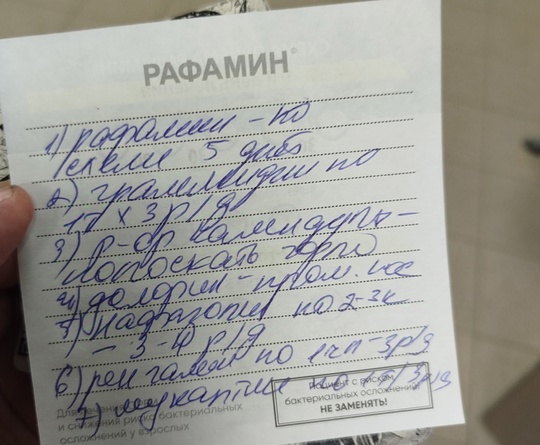 РАФАМИН®
1) рафамин – по
схеме 5 дней
2) граммидин по
1т х 3 р/д
3) р-ор календулы –
полоскать горло
4) долфин – пром. нос
5) нафазолин по 2-3к
– 3-4 р/д
6) ренгалин по 1чл – 3р/д
7) мукалтин по 1т 3р/д
Для лечения
и снижения риска бактериальных
осложнений у взрослых
Пациент с риском
бактериальных осложнений
НЕ ЗАМЕНЯТЬ!